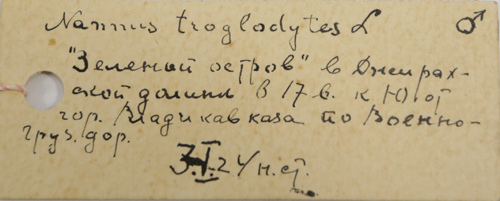 Nannus troglodytes L ♂
"Зеленый остров" в Джерах-
ской долине в 17 в. к Ю. от
гор. Владикавказа по Военно-
груз. дор.
3.I.24 н.ст.